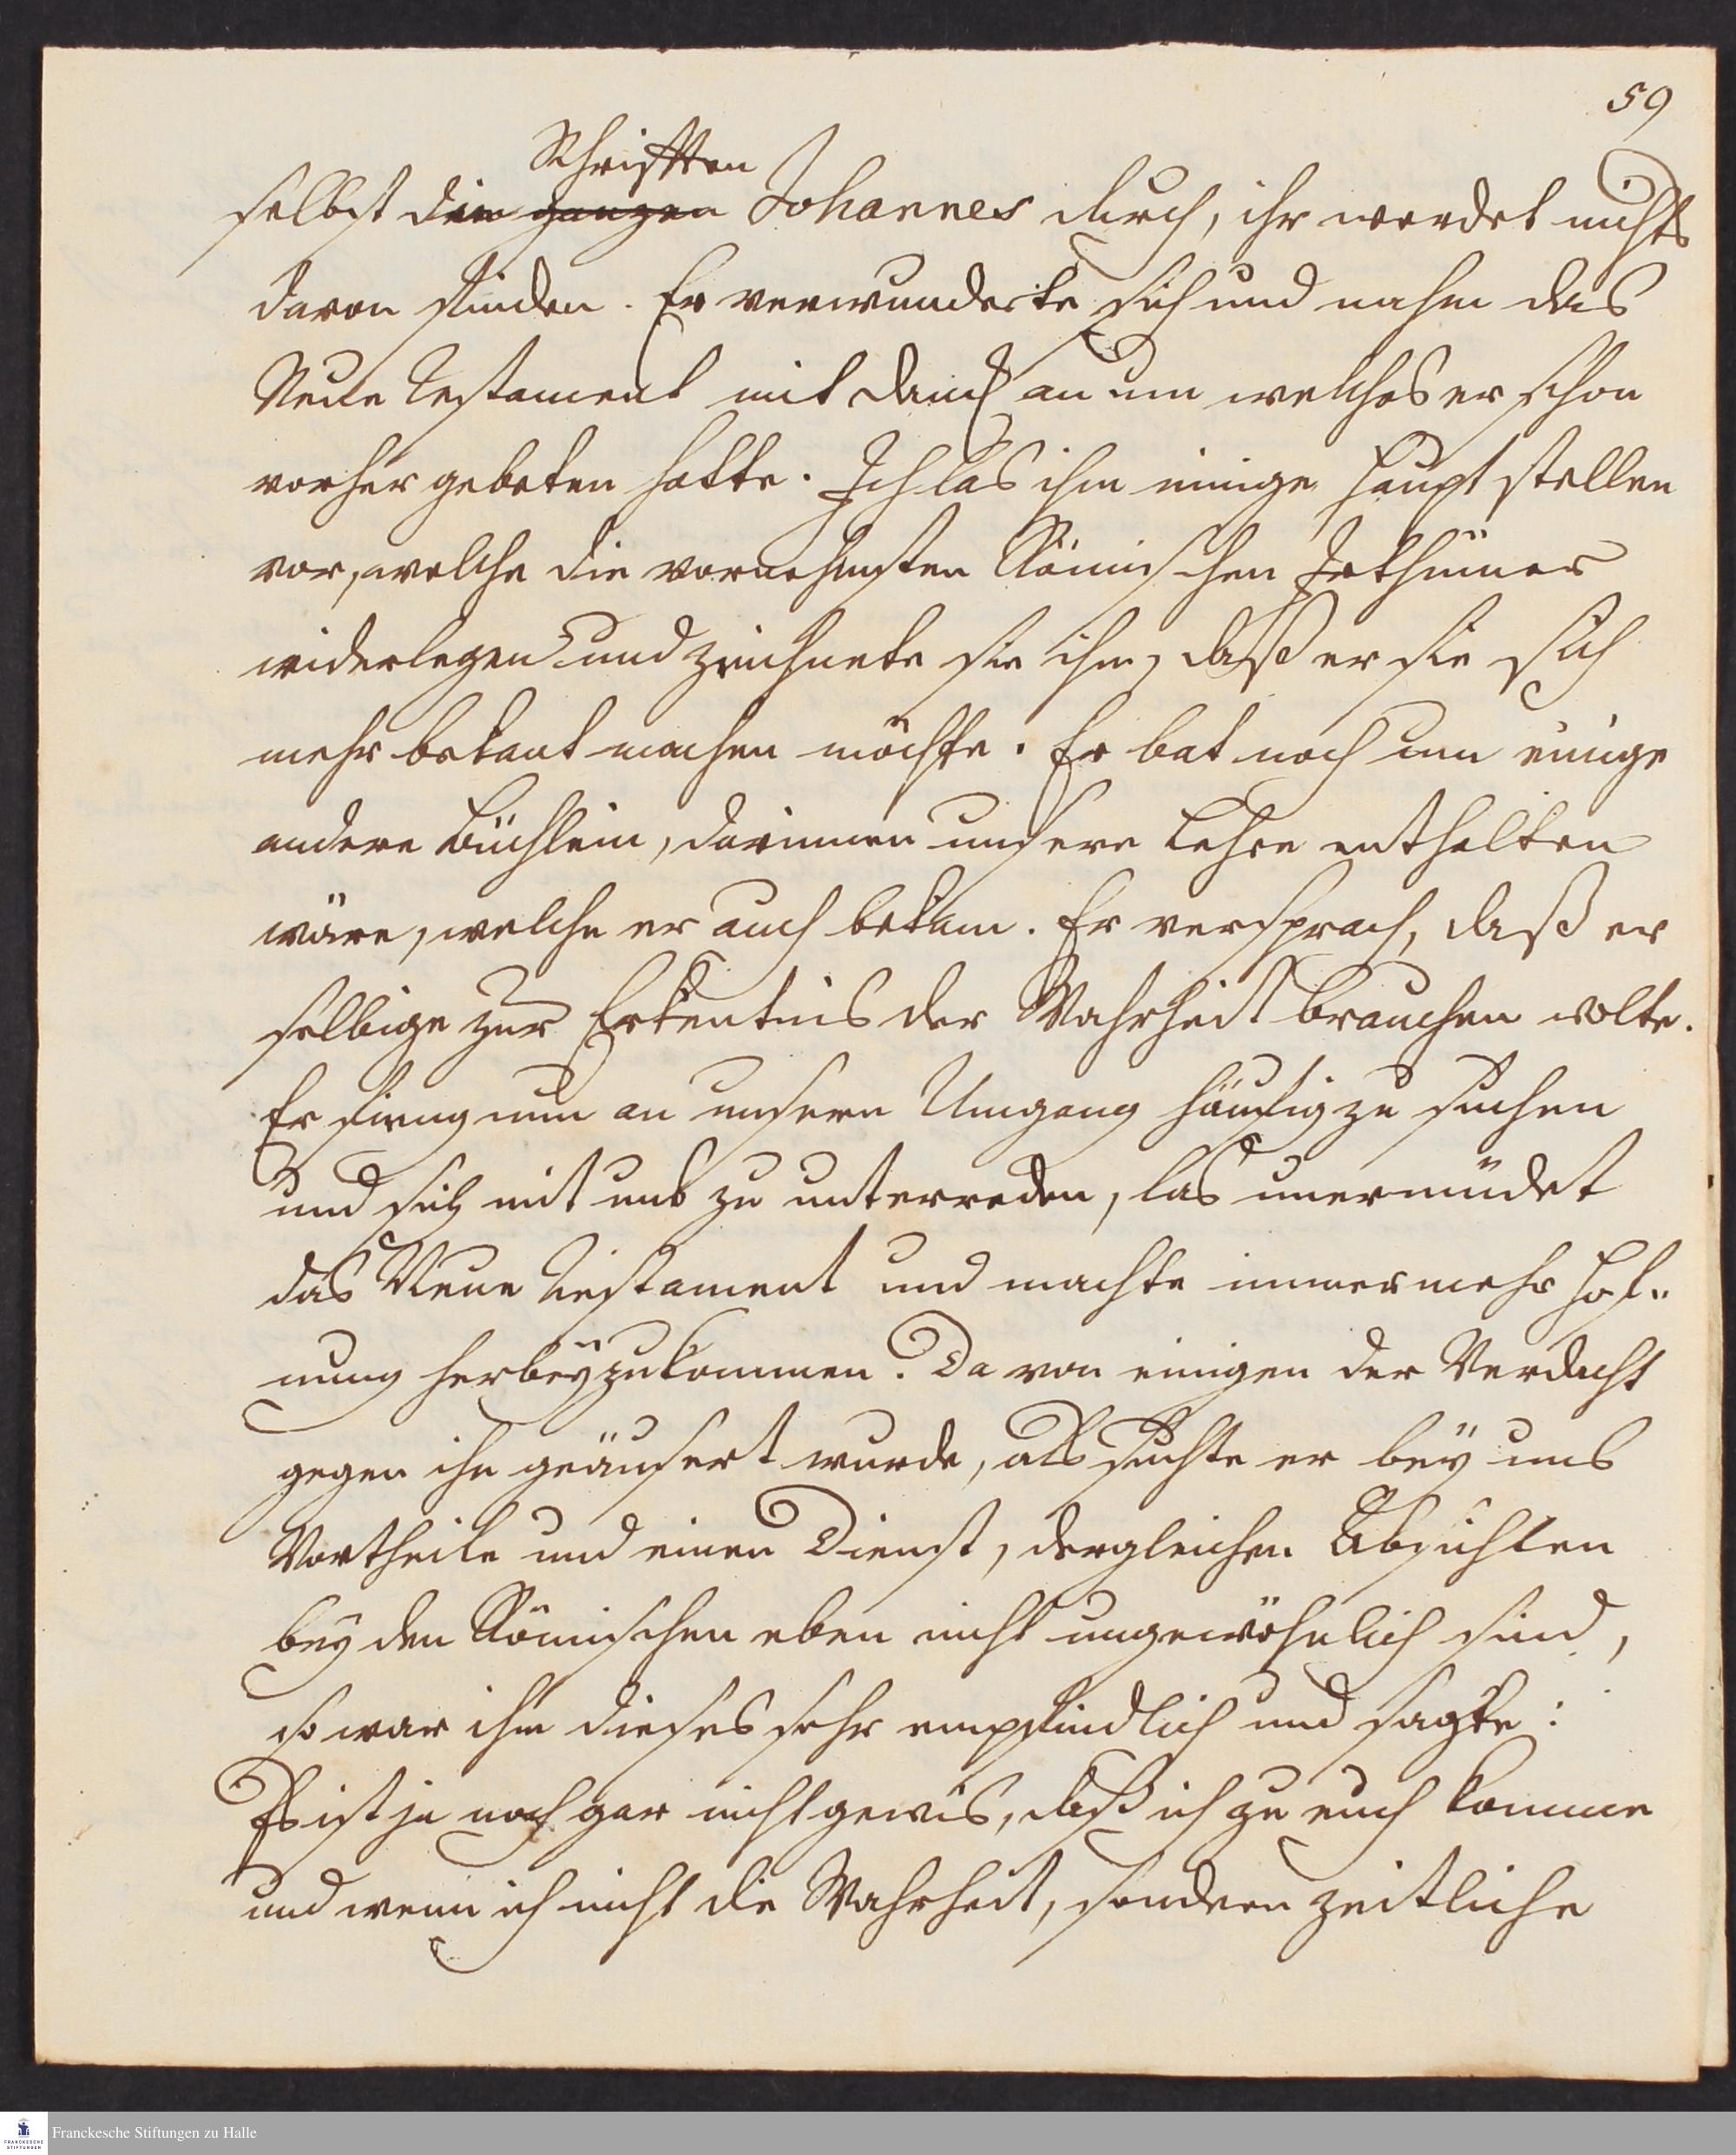 59
Schrifften
selbst die ganzen Johannes durch, ihr werdet nichts
davon finden. Er verwunderte sich und nahm das
Neue Testament mit Danck an um welches er schon
vorher gebeten hatte. Ich las ihm einige Haupt stellen
vor, welche die vornehmsten Römischen Irthümer
widerlegen und zeichnete sie ihm, daß er sie sich
mehr bekant machen möchte. Er bat noch um einige
andere Büchlein, darinnen unsere Lehre enthalten
wäre, welche er auch bekam. Er versprach, daß er
selbige zur Erkentnis der Wahrheit brauchen wolte.
Er fieng nun an unsern Umgang häufig zu suchen
und sich mit uns zu unterreden, las unermüdet
das Neue Testament und machte immer mehr Hof-
nung herbeyzukommen. Da von einigen der Verdacht
gegen ihn geäusert wurde, als suchte er bey uns
Vortheile und einen Dienst, dergleichen Absichten
bey den Römischen eben nicht ungewöhnlich sind,
so war ihm dieses sehr empfindlich und sagte:
Es ist ja noch gar nicht gewis, daß ich zu euch komme
und wenn ich nicht die Wahrheit, sondern zeitliche
Franckesche Stiftungen zu Halle